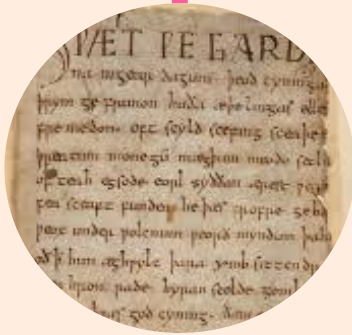 HǷÆT ǷE GARD
na ingear dagum. þeod cyninga
þrym ge frunon huða æþelingas elle
fremedon. oft scyld scefing sceaþe
þreatum monegū mægþum meodo setl
of teah egsode eorl syððan ærest
fea sceaft funden he þæs frofre geb
ƿeox under ƿolcnum ƿeorð myndum þah
him æghƿylc þara ymb sittend
hron rade hyran scolde gom
god cyning.